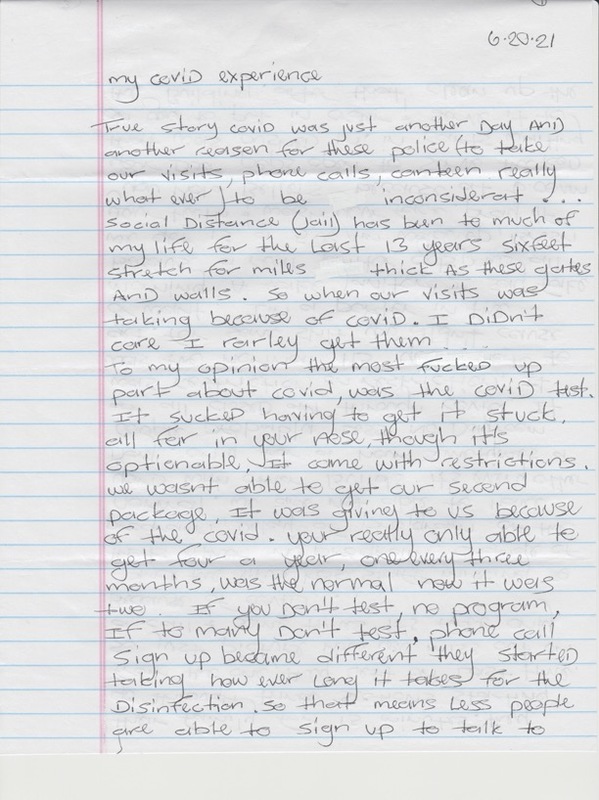 6-20-21
my covid experience
True story covid was just another Day AND
another reason for these police (to take
our visits, phone calls, canteen really
what ever) to be inconsiderat ...
Social Distance (Jail) has been to much of
my life for the Last 13 years sixfeet
stretch for miles thick As these gates
AND walls. So when our visits was
taking because of covid. I DiDn't
care I rarley get them ....
To my opinion the most fucked up
part about covid, was the coviD test.
It sucked having to get it stuck,
all far in your nose, though it's
optionable, It came with restrictions.
we wasnt able to get our second
package, It was giving to us because
of the covid. your really only able to
get four a year, one every three
months, was the normal now it was
two. If you Don't test, no program,
If to many Don't test, phone call
Sign up became different they started
taking how ever Long it takes for the
Disinfection. So that means Less people
are able to sign up to talk to